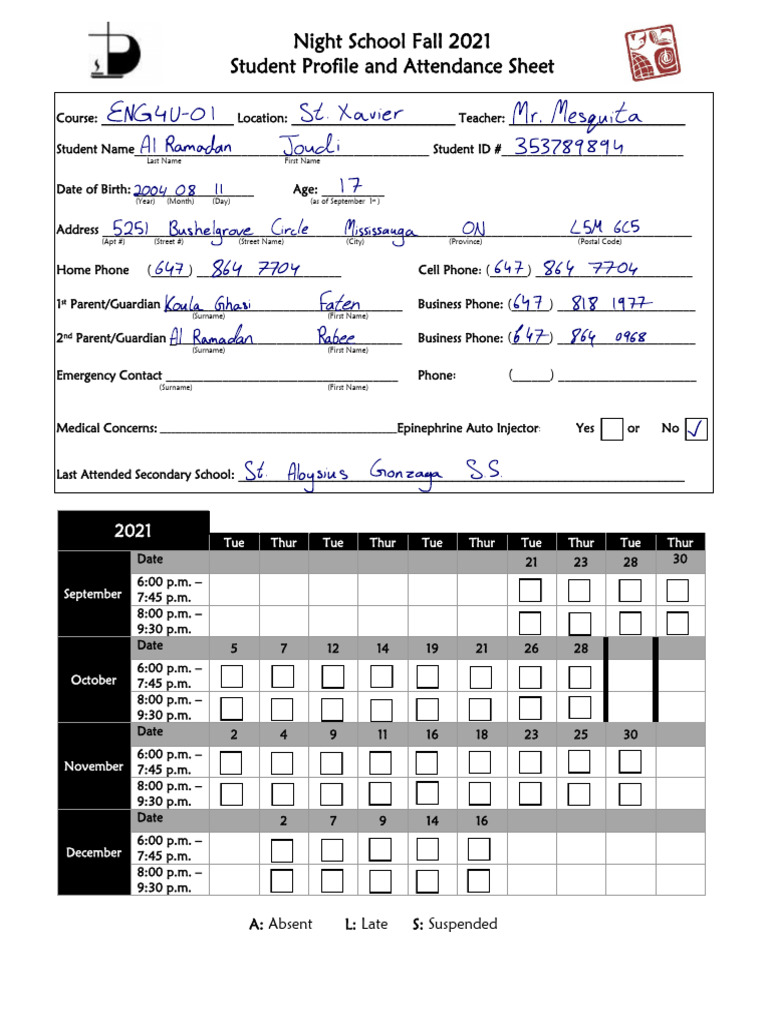 Night School Fall 2021
Student Profile and Attendance Sheet
Course: ENG4U-01 Location: St. Xavier Teacher: Mr. Mesquita
Student Name Al Ramadan Joudi Student ID # 353789894
Last Name First Name
Date of Birth: 2004 08 11 Age: 17
(Year) (Month) (Day) (as of September 1st)
Address 5251 Bushelgrove Circle Mississauga ON L5M 6C5
(Apt #) (Street #) (Street Name) (City) (Province) (Postal Code)
Home Phone (647) 864 7704 Cell Phone: (647) 864 7704
1st Parent/Guardian Koula Ghasi Faten Business Phone: (647) 818 1977
(Surname) (First Name)
2nd Parent/Guardian Al Ramadan Rabee Business Phone: (647) 864 0968
(Surname) (First Name)
Emergency Contact Phone: ( )
(Surname) (First Name)
Medical Concerns: Epinephrine Auto Injector: Yes or No ✓
Last Attended Secondary School: St. Aloysius Gonzaga S.S.
2021
Tue Thur Tue Thur Tue Thur Tue Thur Tue Thur
September
Date 21 23 28 30
6:00 p.m. –
7:45 p.m.
8:00 p.m. –
9:30 p.m.
October
Date 5 7 12 14 19 21 26 28
6:00 p.m. –
7:45 p.m.
8:00 p.m. –
9:30 p.m.
November
Date 2 4 9 11 16 18 23 25 30
6:00 p.m. –
7:45 p.m.
8:00 p.m. –
9:30 p.m.
December
Date 2 7 9 14 16
6:00 p.m. –
7:45 p.m.
8:00 p.m. –
9:30 p.m.
A: Absent L: Late S: Suspended